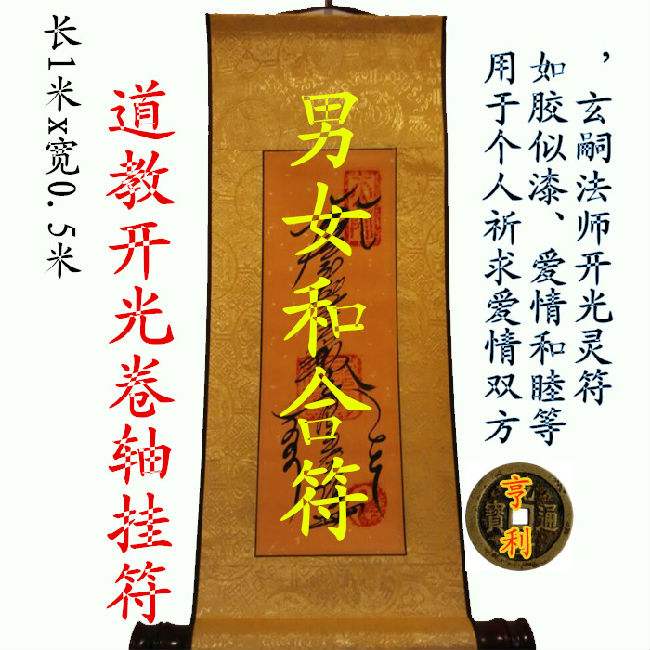 长1米x宽0.5米
道教开光卷轴挂符
男女和合符
用于个人祈求爱情双方
如胶似漆、爱情和睦等
，玄嗣法师开光灵符
亨利
通寶